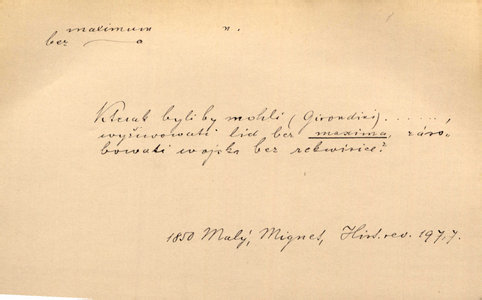 maximum n.
bez ~ a
Kterak byli by mohli (Girondici) . . . . . ,
wyžiwowati lid bez maxima, záso-
bowati wojska bez rekwisice?
1850 Malý, Mignet, Hist. rev. 197,7.